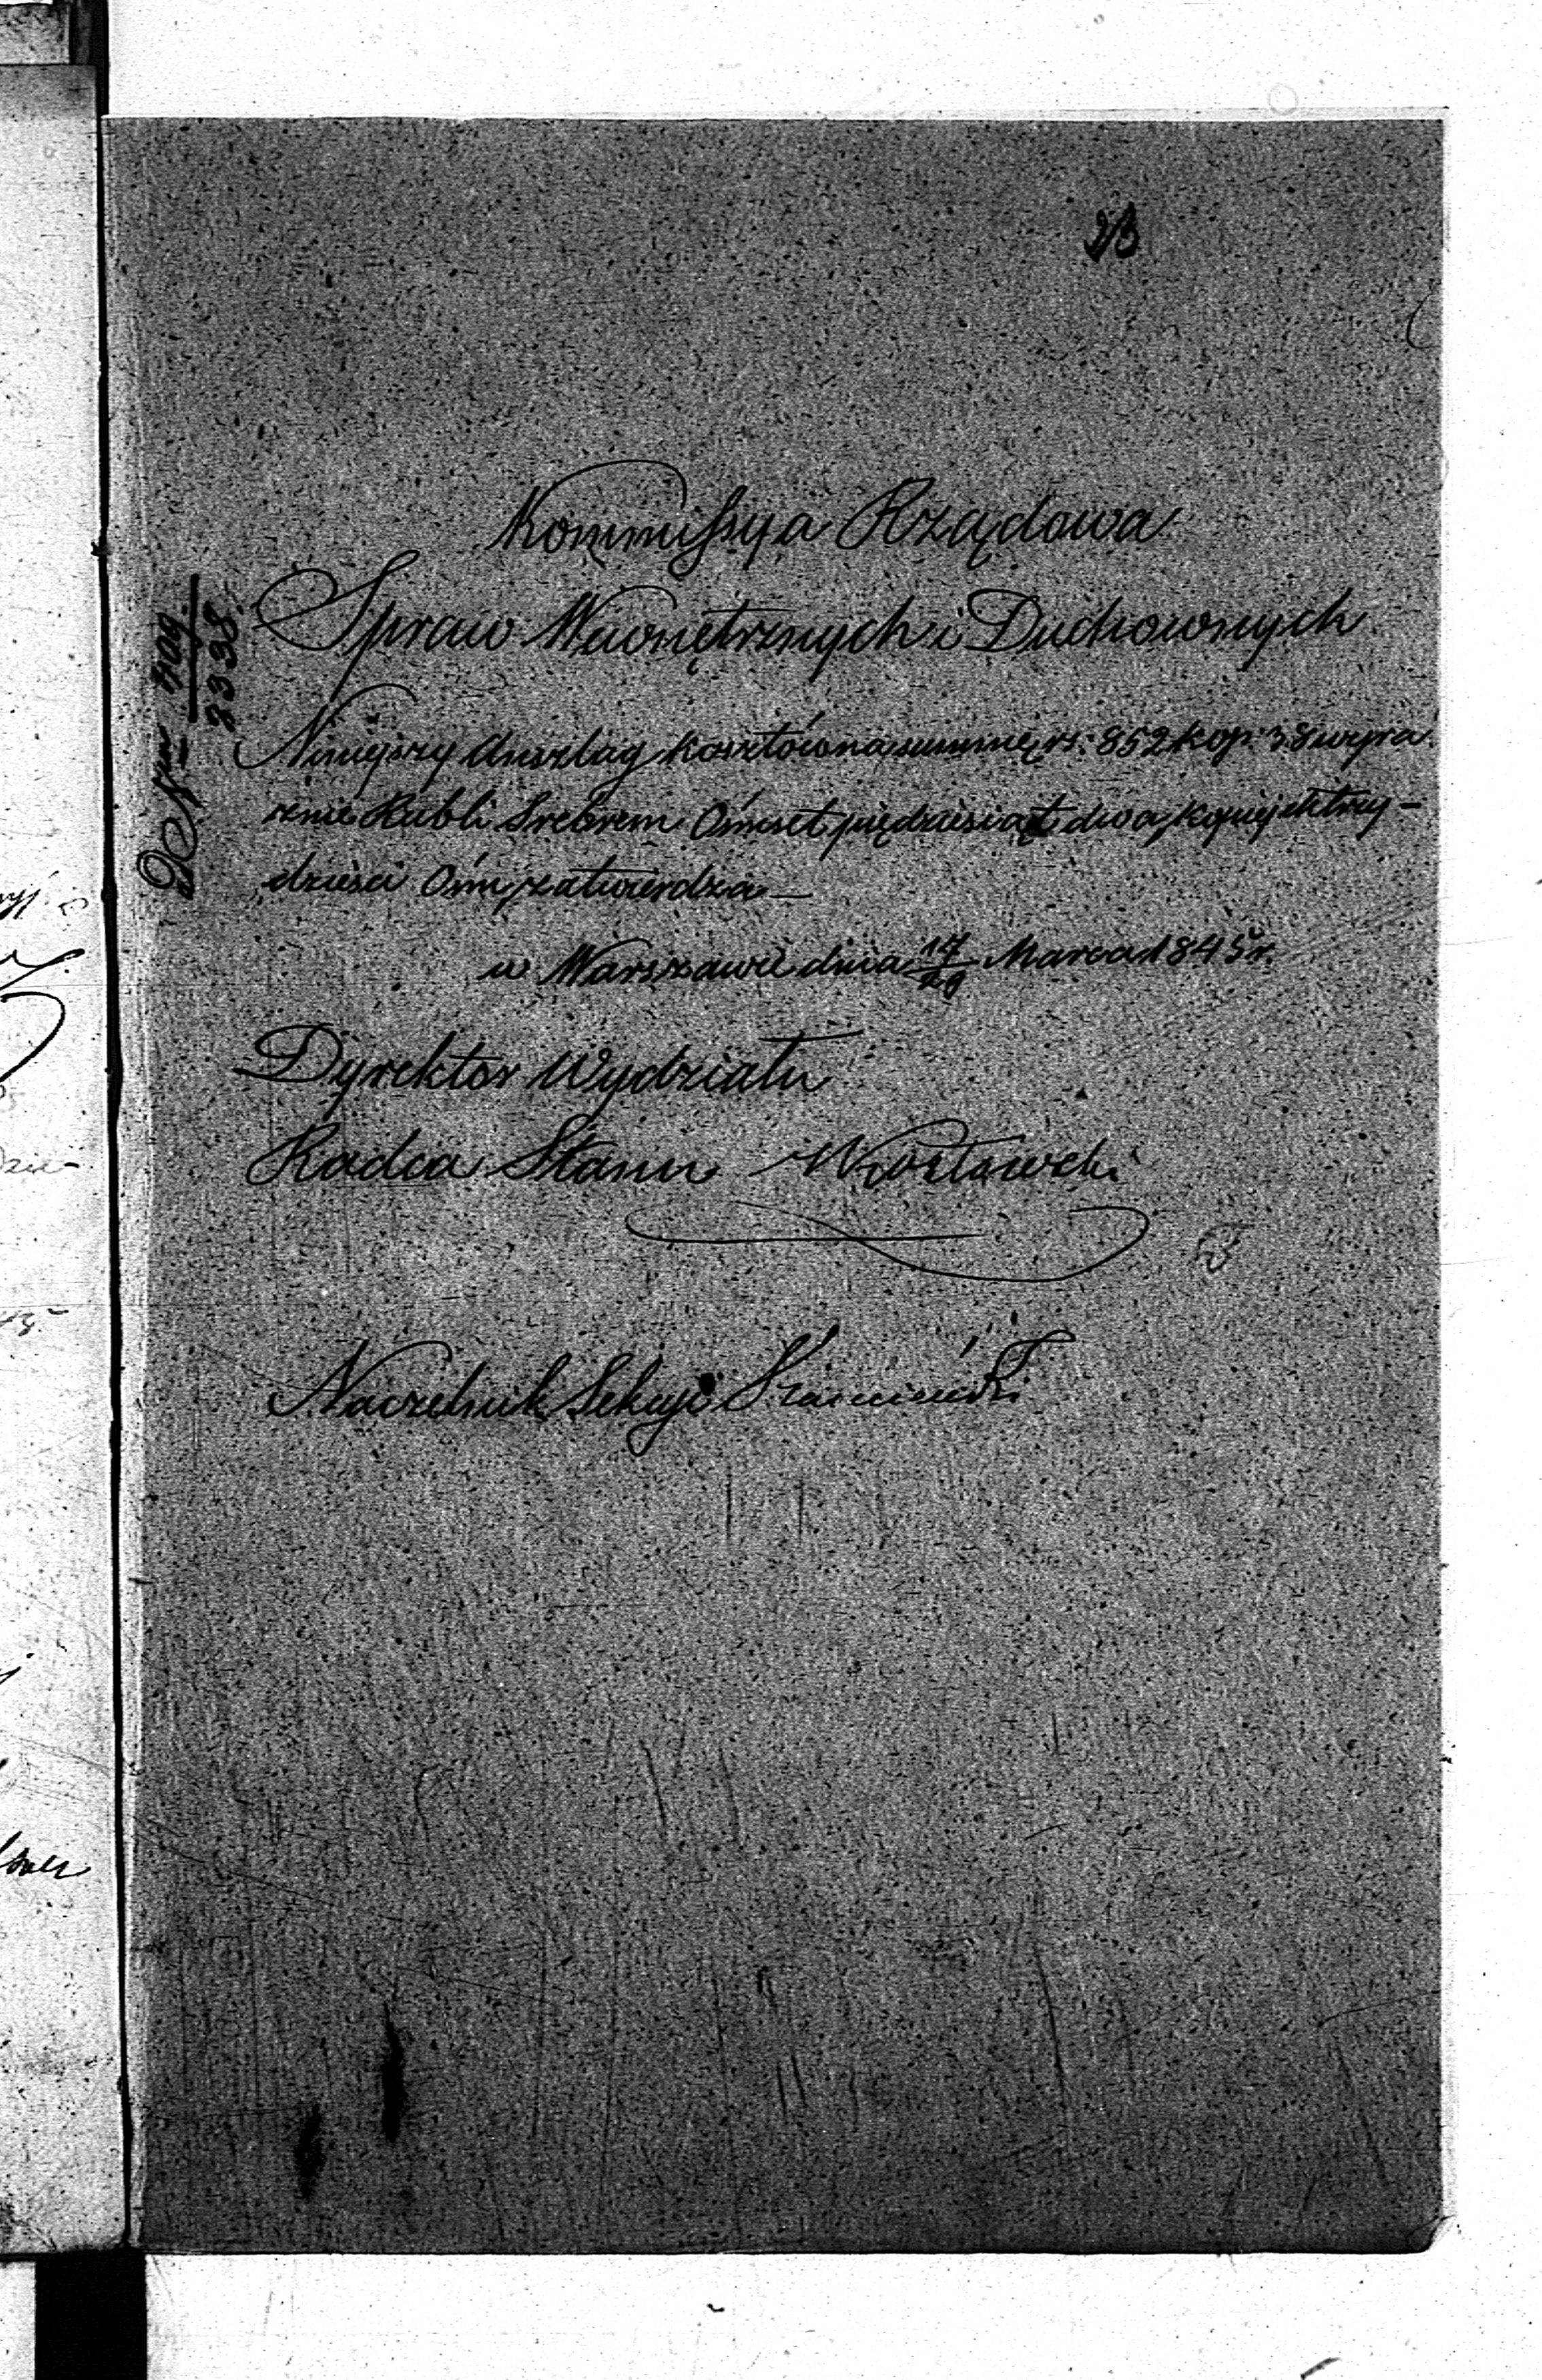 23
Kommissya Rządowa
Spraw Wewnętrznych i Duchownych
Niniejszy Anszlag kosztów na summę rs: 852 kop: 38 wyra
źnie Rubli Srebrem Ośmset piędziesiąt dwa, kopiejek trzy-
dzieści Ośm, zatwierdza —
w Warszawie dnia 17/29 Marca 1845 r.
Dyrektor Wydziału
Radca Stanu
Naczelnik Sekcyi
Do Nru 309/2338